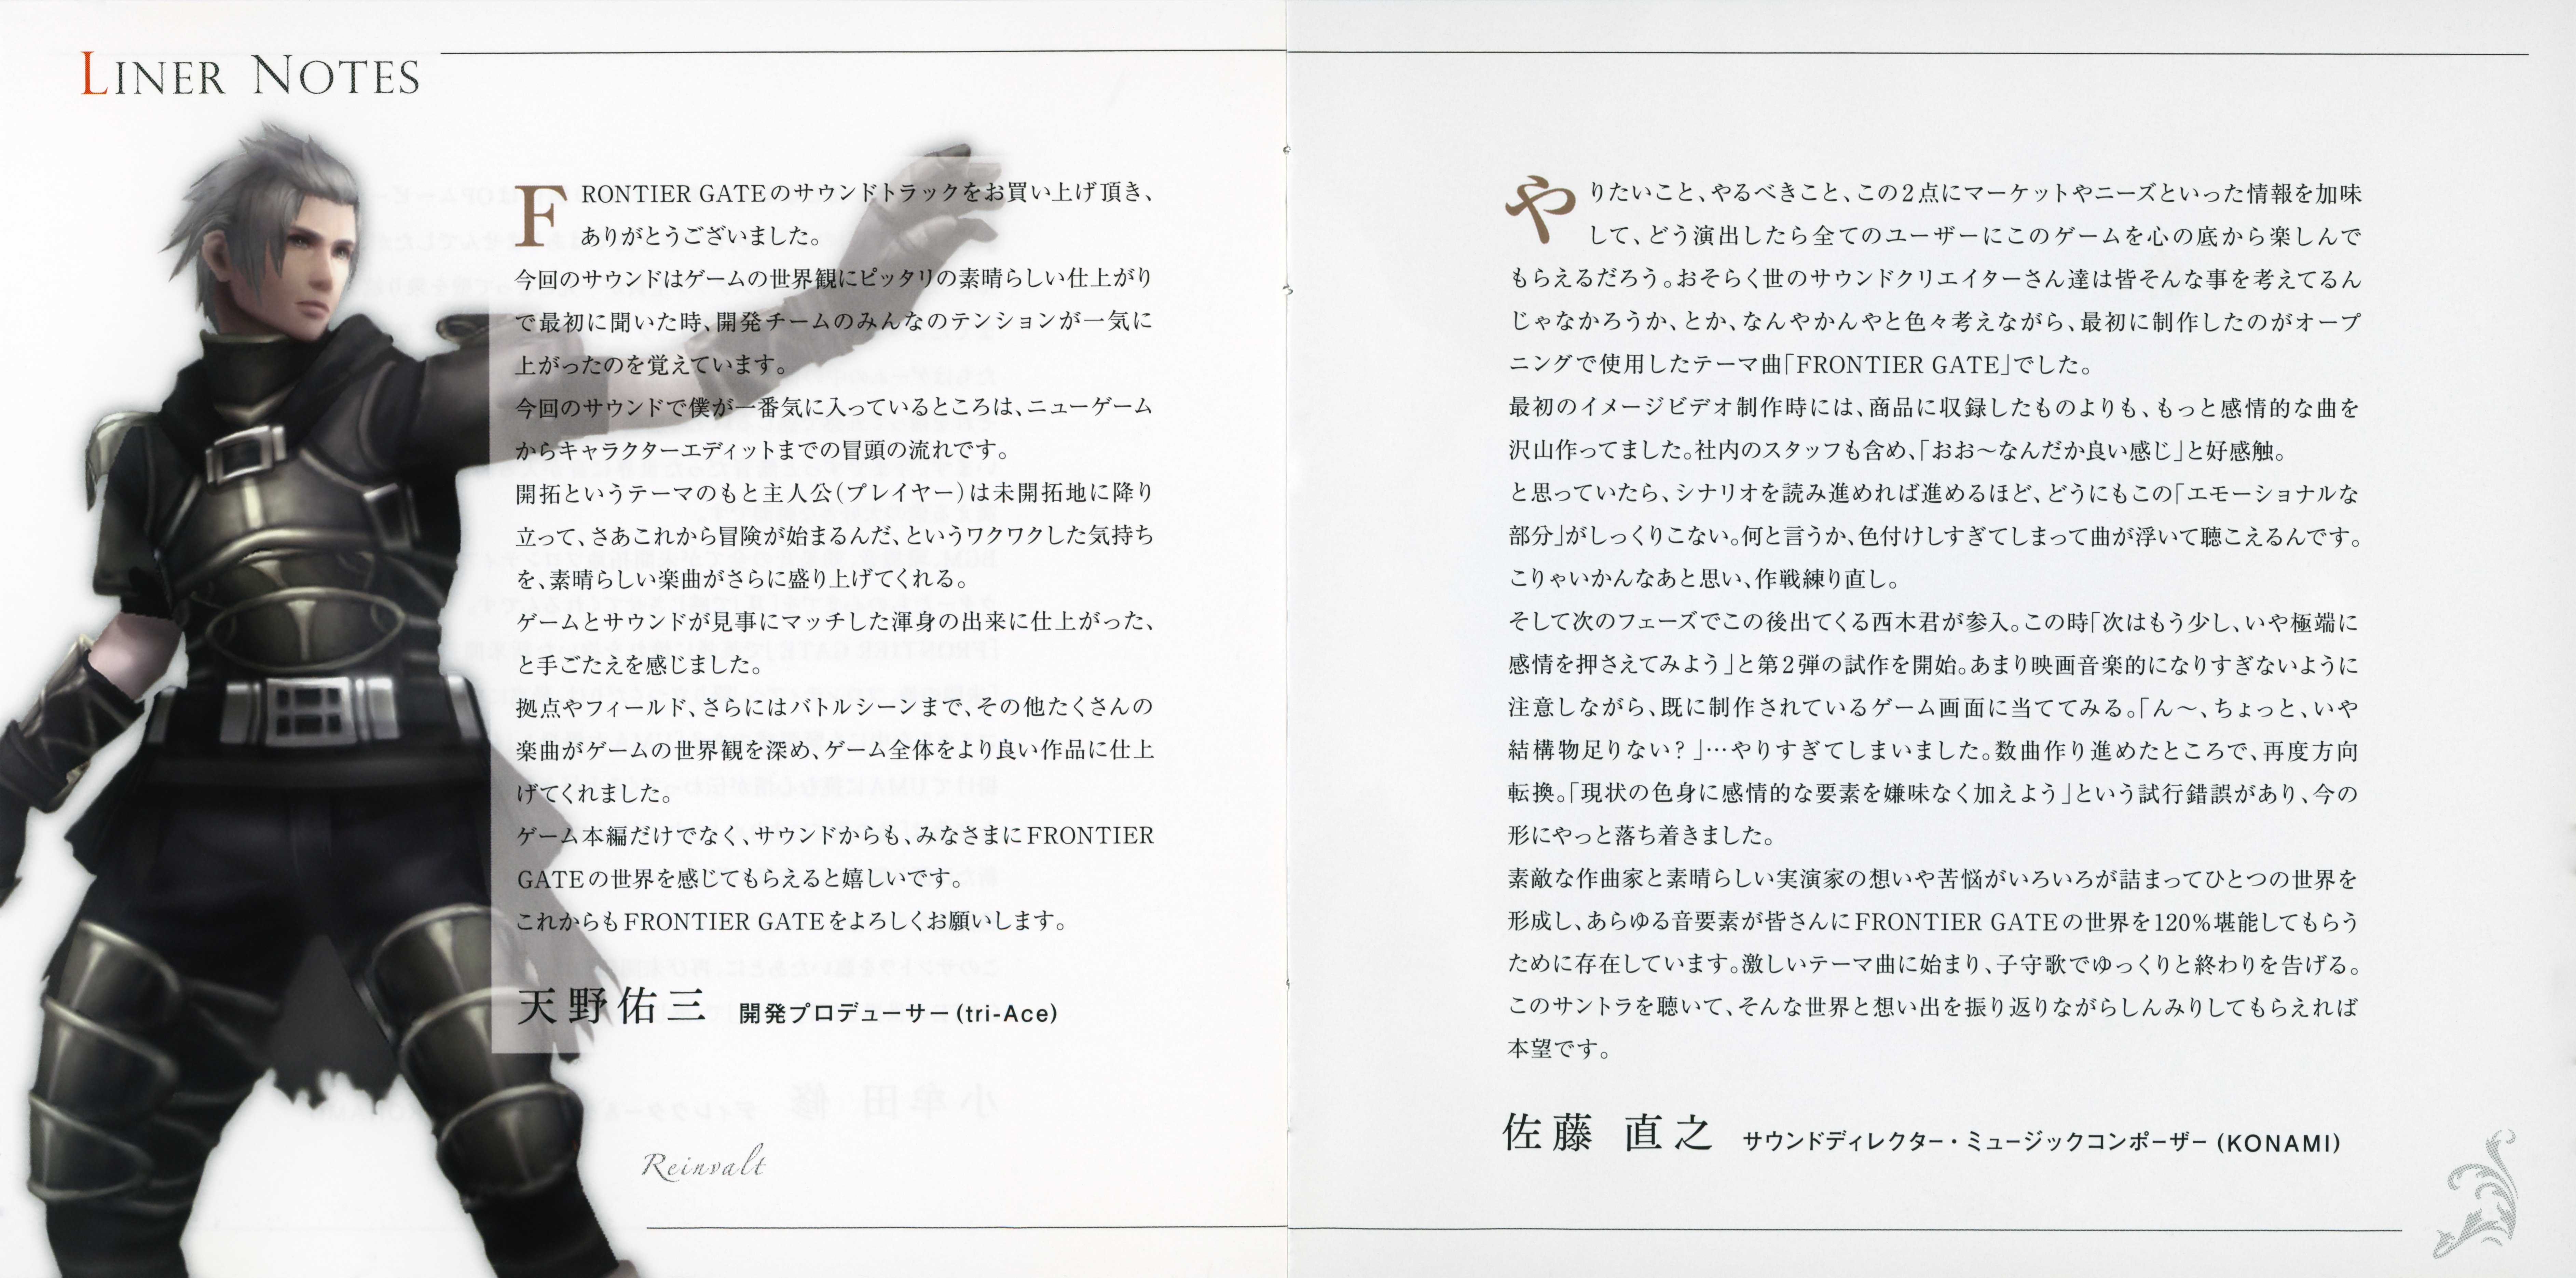 LINER NOTES
FRONTIER GATEのサウンドトラックをお買い上げ頂き、
ありがとうございました。
今回のサウンドはゲームの世界観にピッタリの素晴らしい仕上がり
で最初に聞いた時、開発チームのみんなのテンションが一気に
上がったのを覚えています。
今回のサウンドで僕が一番気に入っているところは、ニューゲーム
からキャラクターエディットまでの冒頭の流れです。
開拓というテーマのもと主人公(プレイヤー)は未開拓地に降り
立って、さあこれから冒険が始まるんだ、というワクワクした気持ち
を、素晴らしい楽曲がさらに盛り上げてくれる。
ゲームとサウンドが見事にマッチした渾身の出来に仕上がった、
と手ごたえを感じました。
拠点やフィールド、さらにはバトルシーンまで、その他たくさんの
楽曲がゲームの世界観を深め、ゲーム全体をより良い作品に仕上
げてくれました。
ゲーム本編だけでなく、サウンドからも、みなさまにFRONTIER
GATEの世界を感じてもらえると嬉しいです。
これからもFRONTIER GATEをよろしくお願いします。
天野佑三 開発プロデューサー(tri-Ace)
Reinvalt
やりたいこと、やるべきこと、この2点にマーケットやニーズといった情報を加味
して、どう演出したら全てのユーザーにこのゲームを心の底から楽しんで
もらえるだろう。おそらく世のサウンドクリエイターさん達は皆そんな事を考えてるん
じゃなかろうか、とか、なんやかんやと色々考えながら、最初に制作したのがオープ
ニングで使用したテーマ曲「FRONTIER GATE」でした。
最初のイメージビデオ制作時には、商品に収録したものよりも、もっと感情的な曲を
沢山作ってました。社内のスタッフも含め、「おお〜なんだか良い感じ」と好感触。
と思っていたら、シナリオを読み進めれば進めるほど、どうにもこの「エモーショナルな
部分」がしっくりこない。何と言うか、色付けしすぎてしまって曲が浮いて聴こえるんです。
こりゃいかんなあと思い、作戦練り直し。
そして次のフェーズでこの後出てくる西木君が参入。この時「次はもう少し、いや極端に
感情を押さえてみよう」と第2弾の試作を開始。あまり映画音楽的になりすぎないように
注意しながら、既に制作されているゲーム画面に当ててみる。「ん〜、ちょっと、いや
結構物足りない?」…やりすぎてしまいました。数曲作り進めたところで、再度方向
転換。「現状の色身に感情的な要素を嫌味なく加えよう」という試行錯誤があり、今の
形にやっと落ち着きました。
素敵な作曲家と素晴らしい実演家の想いや苦悩がいろいろが詰まってひとつの世界を
形成し、あらゆる音要素が皆さんにFRONTIER GATEの世界を120%堪能してもらう
ために存在しています。激しいテーマ曲に始まり、子守歌でゆっくりと終わりを告げる。
このサントラを聴いて、そんな世界と想い出を振り返りながらしんみりしてもらえれば
本望です。
佐藤 直之 サウンドディレクター・ミュージックコンポーザー (KONAMI)